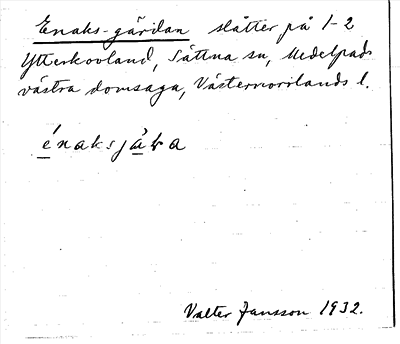 Enaks-gärdan slåtter på 1-2
Ytterkovland, Sättna sn, Medelpads
västra domsaga, Västernorrlands l.
énaksjåƀa
Valter Jansson 1932.